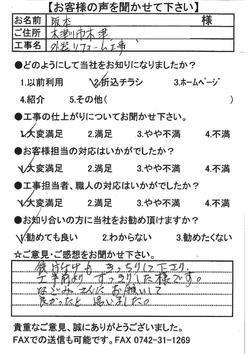 【お客様の声を聞かせて下さい】
お名前 坂本 様
ご住所 木津川市木津
工事名 外装リフォーム工事
●どのようにして当社をお知りになりましたか?
1.以前利用 2.折込チラシ 3.ホームページ
4.紹介 5.その他( )
●工事の仕上がりについてお聞かせ下さい。
1.大変満足 2.満足 3.やや不満 4.不満
●お客様担当の対応はいかがでしたか?
1.大変満足 2.満足 3.やや不満 4.不満
●工事担当者、職人の対応はいかがでしたか?
1.大変満足 2.満足 3.やや不満 4.不満
●お知り合いの方に当社をお勧め頂けますか?
1.勧めても良い 2.わからない 3.勧めたくない
☆ご意見・ご感想をお聞かせ下さい☆
後片付けも きっちりして下さり、
工事前より すっきりした様です。
さんにお願いして
良かったと思いました。
貴重なご意見、誠にありがとうございました。
FAXでの送信も可能です。FAX 0742-31-1269